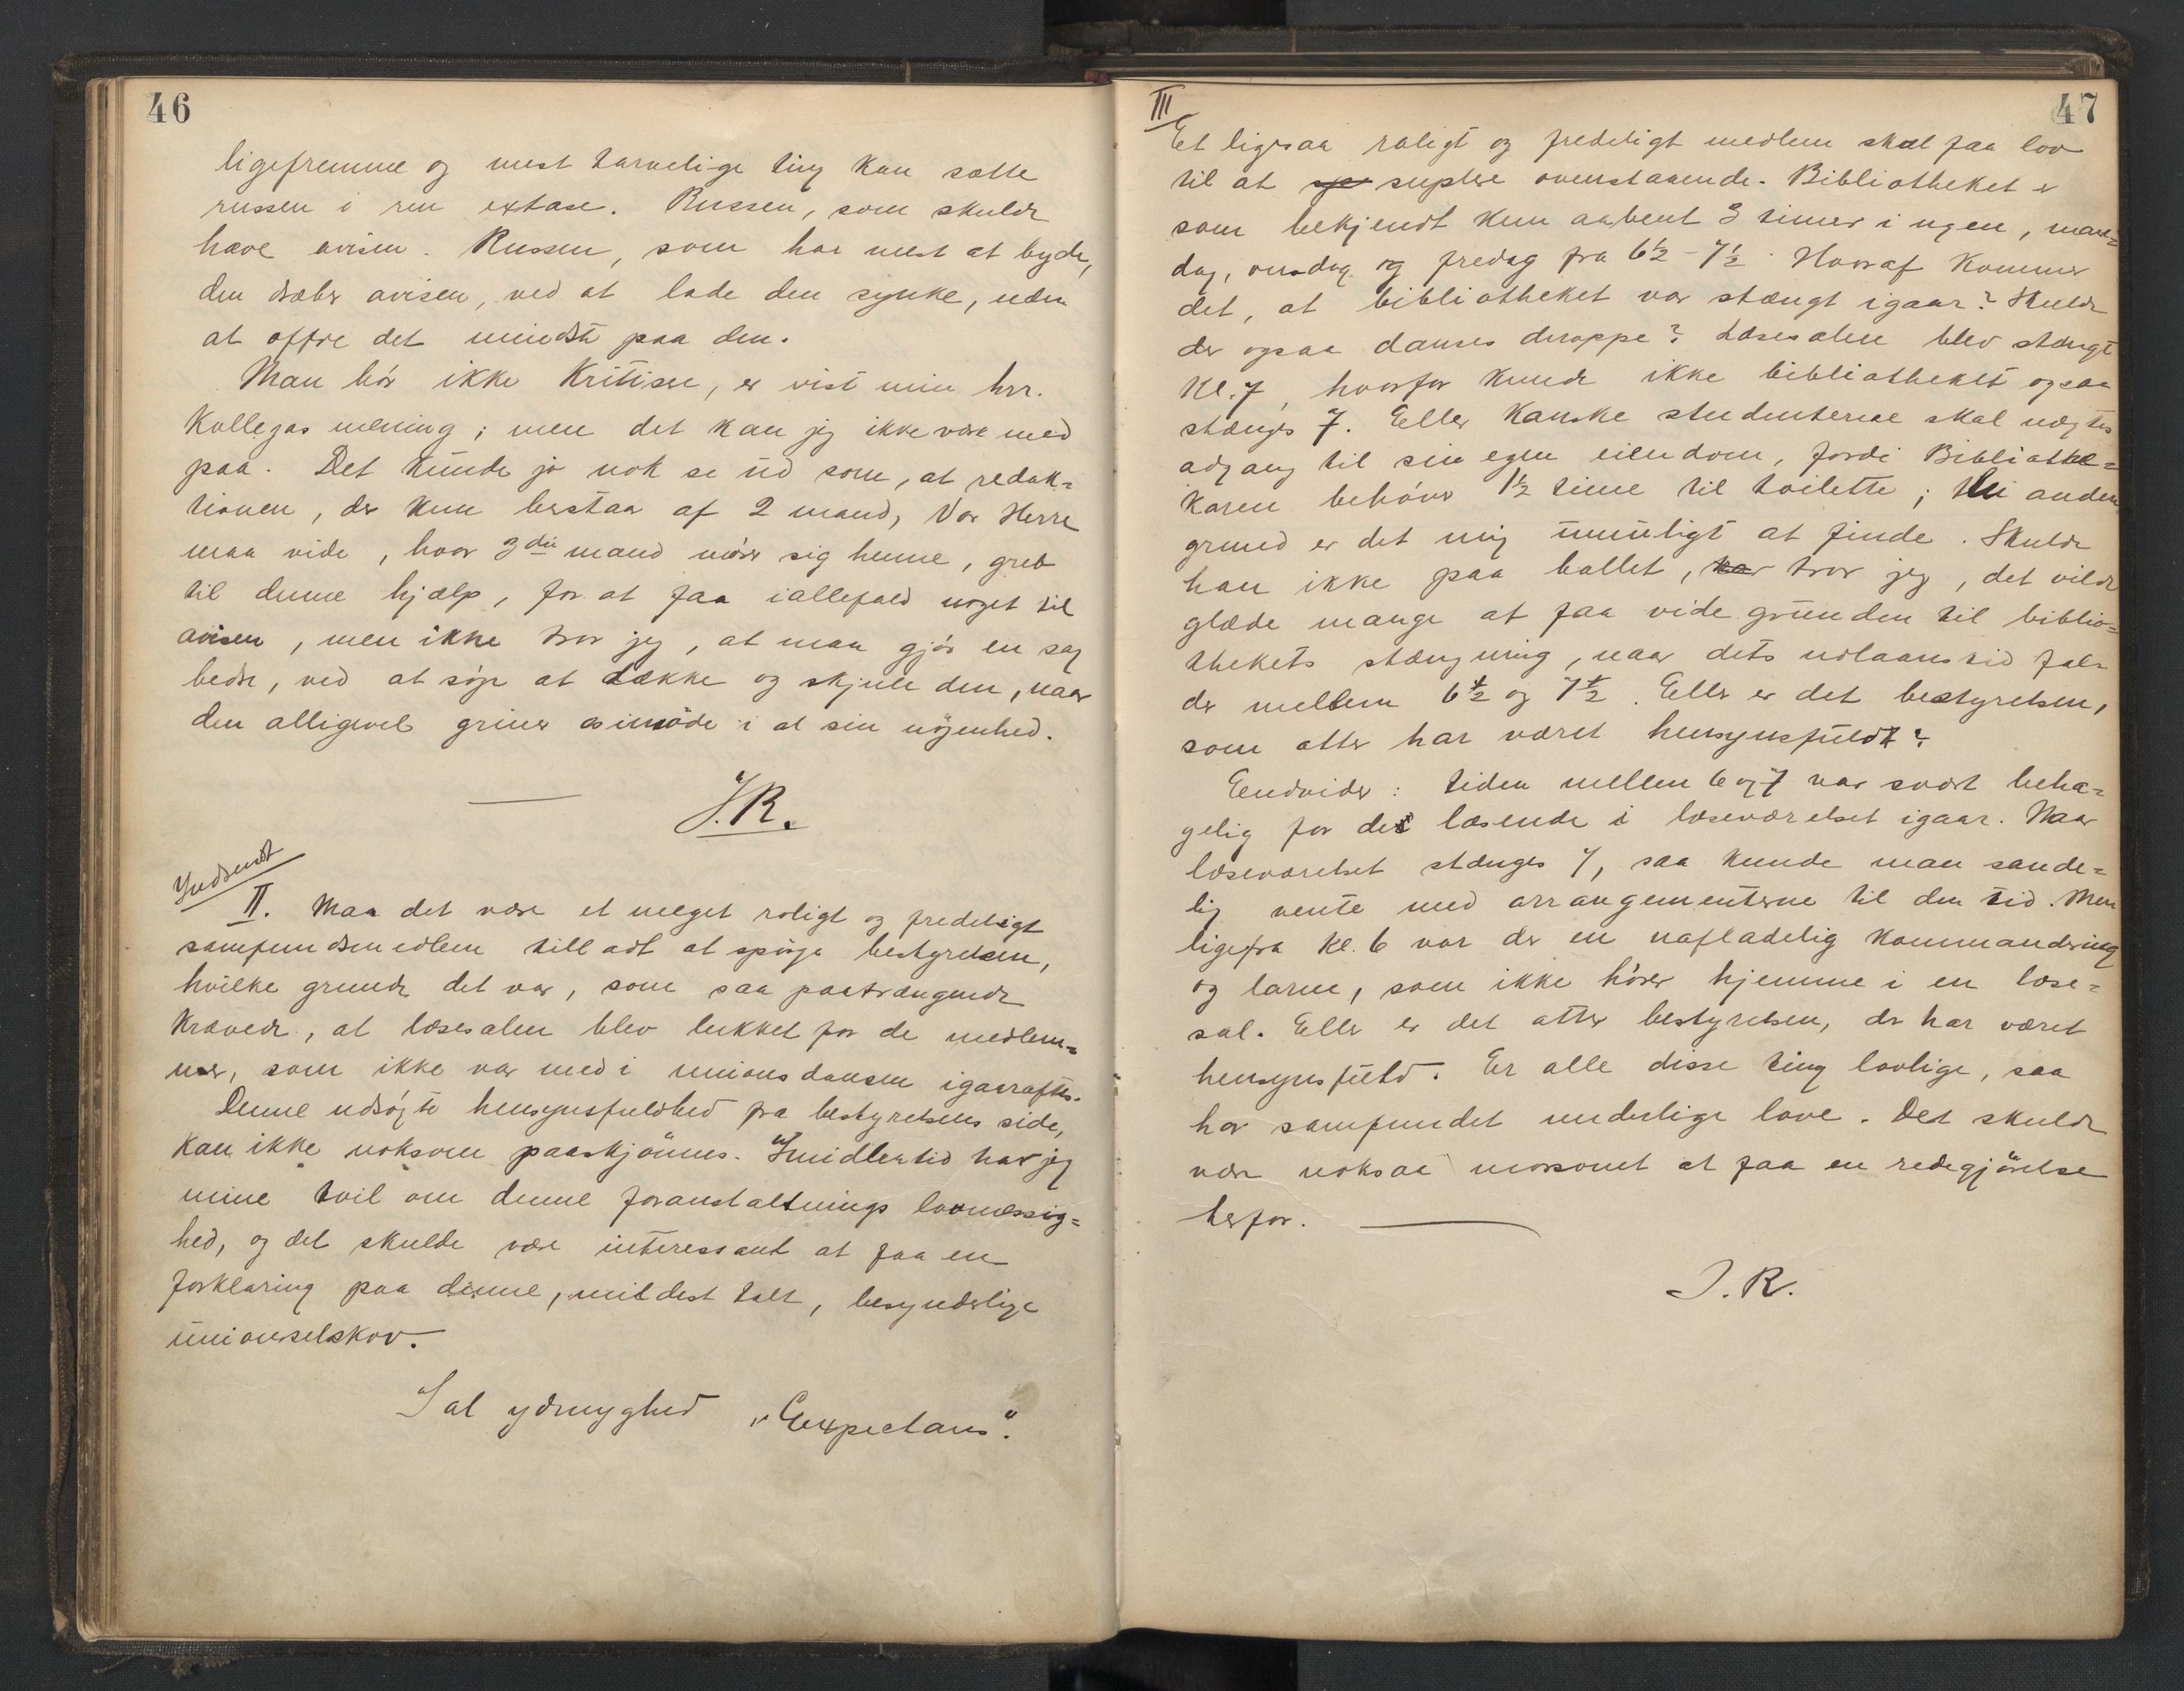 46
ligefremme og mest tarvelige ting kan sætte
russen i ren extase. Russen, som skulde
hæve avisen. Russen, som har mest at byde,
den dræber avisen, ved at lade den synke, uden
at offre det mindste paa den.
Man bör ikke kritisere, er vist min hrr.
kollegas mening; men det kan jeg ikke være med
paa. Det kunde jo nok se ud som, at redak=
tionen, der kun bestaar af 2 mand, Vor Herre
maa vide, hvor 3die mand rörer sig henne, greb
til denne hjælp, for at faa iallefald noget til
avisen, men ikke tror jeg, at man gjör en sag
bedre, ved at söge at dække og skjule den, naar
den alligevel griner os imöde i al sin nögenhed.
J.R.
Indsendt
II. Maa det være et meget roligt og fredeligt
samfundsmedlem tilladt at spörge bestyrelsen,
hvilke grunde det var, som saa paatrængende
krævede, at læsesalen blev lukket for de medlem=
mer, som ikke var med i unionsdansen igaaraftes.
Denne udsögte hensynsfuldhed fra bestyrelsens side,
kan ikke noksom paaskjönnes. Imidlertid har jeg
mine tvil om denne foranstaltnings lovmæssig=
hed, og det skulde være interessant at faa en
forklaring paa denne, mildest talt, besynderlige
unionselskov.
I al ydmyghed „Expectans".
III
47
Et ligesaa roligt og fredeligt medlem skal faa lov
til at suplere ovenstaaende. Bibliotheket er
som bekjendt kun aabent 3 timer i ugen, man=
dag, onsdag og fredag fra 6½ - 7½. Hvoraf kommer
det, at bibliotheket var stængt igaar? Skulde
der ogsaa danses deroppe? Læsesalen blev stængt
Kl. 7, hvorfor kunde ikke bibliotheket ogsaa
stænges 7. Eller kanske studenterne skal nægtes
adgang til sin egen eiendom, fordi Bibliothe=
karen behöver 1½ time til toilette; thi anden
grund er det mig umuligt at finde. Skulde
han ikke paa ballet, tror jeg, det vilde
glæde mange at faa vide grunden til biblio=
thekets stængning, naar dets udlaanstid fal=
der mellem 6½ og 7½. Eller er det bestyrelsen,
som atter har været hensynsfuld?
Endvider: tiden mellem 6 og 7 var svært beha=
gelig for de læsende i læseværelset igaar. Naar
læseværelset stænges 7, saa kunde man sande=
lig vente med arrangementerne til den tid. Men
ligefra kl. 6 var der en uafladelig kommandering
og larm, som ikke hörer hjemme i en læse=
sal. Eller er det atter bestyrelsen, der har været
hensynsfuld. Er alle disse ting lovlige, saa
har samfundet underlige love. Det skulde
være noksaa morsomt at faa en redegjörelse
herfor.
J.R.